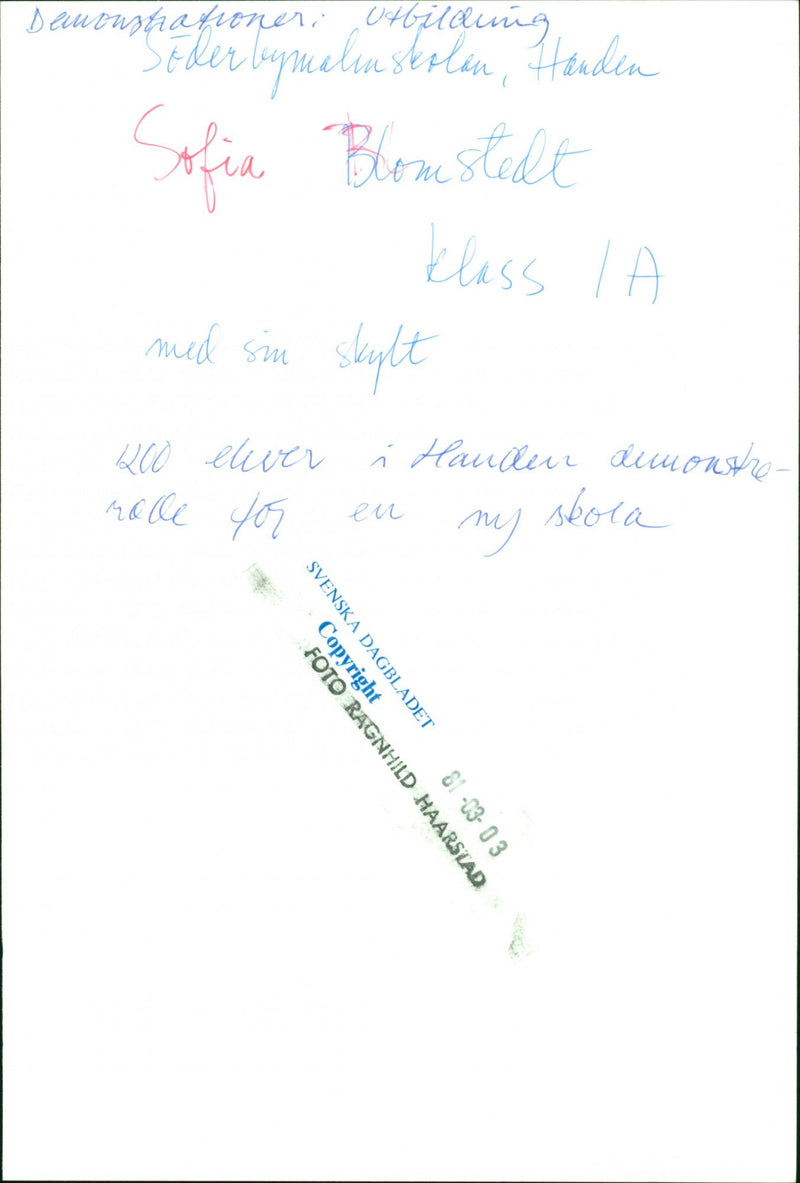 Demonstrationer: Utbildning
Söderbymalmskolan, Handen
Sofia Blomstedt
klass 1A
med sin skylt
1200 elever i Handen demonstre-
rade för en ny skola
SVENSKA DAGBLADET
Copyright
FOTO RAGNHILD HAARSTAD
81-03-03